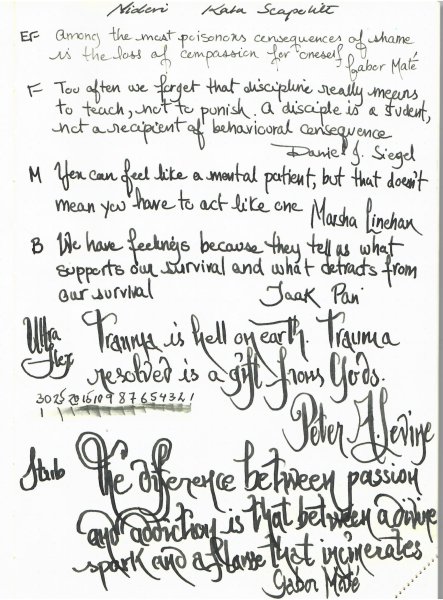 Kata Scapolitt
EF Among the most poisonous consequences of shame
is the loss of compassion for oneself
Gabor Maté
F Too often we forget that discipline really means
to teach, not to punish. A disciple is a student,
not a recipient of behavioural consequence
Daniel J. Siegel
M You can feel like a mental patient, but that doesn't
mean you have to act like one Marsha Linehan
B We have feelings because they tell us what
supports our survival and what detracts from
our survival
Jaak Pan
Ultra Flex
Trauma is hell on earth. Trauma
resolved is a gift from Gods.
30 25 20 15 10 9 8 7 6 5 4 3 2 1
Peter A. Levine
Stub
The diference between passion
and addiction is that between a divine
spark and a flame that incinerates
Gabor Maté